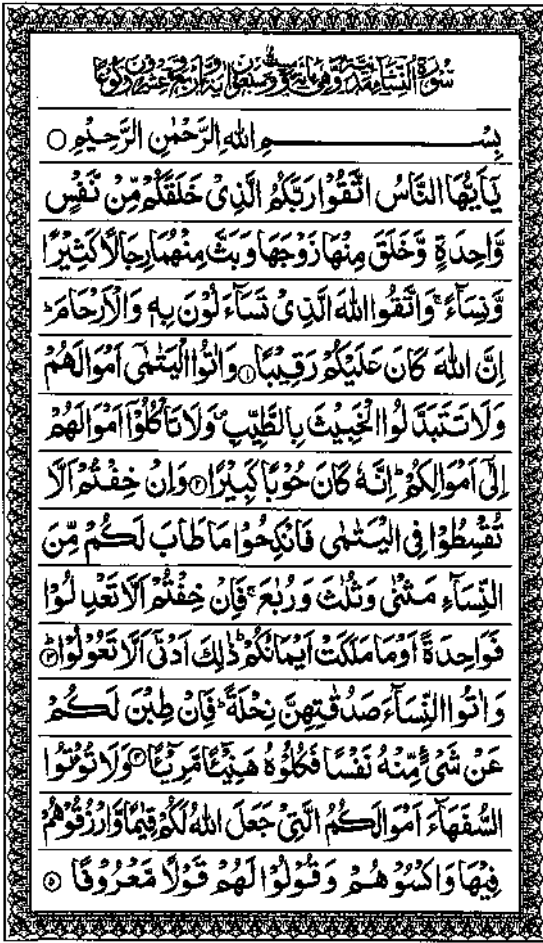 سُوْرَةُ النِّسَآءِ مَدَنِيَّةٌ وَّهِىَ مِائَةٌ وَّسِتٌّ وَّسَبْعُوْنَ اٰيَةً وَّاَرْبَعَةٌ وَّعِشْرُوْنَ رُكُوْعًا
بِسْمِ اللهِ الرَّحْمٰنِ الرَّحِيْمِ ○
يٰۤاَيُّهَا النَّاسُ اتَّقُوْا رَبَّكُمُ الَّذِىْ خَلَقَكُمْ مِّنْ نَّفْسٍ
وَّاحِدَةٍ وَّخَلَقَ مِنْهَا زَوْجَهَا وَبَثَّ مِنْهُمَا رِجَالًا كَثِيْرًا
وَّنِسَآءً ۚ وَاتَّقُوا اللهَ الَّذِىْ تَسَآءَلُوْنَ بِهٖ وَالْاَرْحَامَ ؕ
اِنَّ اللهَ كَانَ عَلَيْكُمْ رَقِيْبًا ۝۱ وَاٰتُوا الْيَتٰمٰٓى اَمْوَالَهُمْ
وَلَا تَتَبَدَّلُوا الْخَبِيْثَ بِالطَّيِّبِ ۪ وَلَا تَاْكُلُوْۤا اَمْوَالَهُمْ
اِلٰٓى اَمْوَالِكُمْ ؕ اِنَّهٗ كَانَ حُوْبًا كَبِيْرًا ۝۲ وَاِنْ خِفْتُمْ اَلَّا
تُقْسِطُوْا فِى الْيَتٰمٰى فَانْكِحُوْا مَا طَابَ لَكُمْ مِّنَ
النِّسَآءِ مَثْنٰى وَثُلٰثَ وَرُبٰعَ ۚ فَاِنْ خِفْتُمْ اَلَّا تَعْدِلُوْا
فَوَاحِدَةً اَوْ مَا مَلَكَتْ اَيْمَانُكُمْ ؕ ذٰلِكَ اَدْنٰٓى اَلَّا تَعُوْلُوْا ۝۳ؕ
وَاٰتُوا النِّسَآءَ صَدُقٰتِهِنَّ نِحْلَةً ؕ فَاِنْ طِبْنَ لَكُمْ
عَنْ شَىْءٍ مِّنْهُ نَفْسًا فَكُلُوْهُ هَنِيْٓئًا مَّرِيْٓئًا ۝۴ وَلَا تُؤْتُوا
السُّفَهَآءَ اَمْوَالَكُمُ الَّتِىْ جَعَلَ اللهُ لَكُمْ قِيٰمًا وَّارْزُقُوْهُمْ
فِيْهَا وَاكْسُوْهُمْ وَقُوْلُوْا لَهُمْ قَوْلًا مَّعْرُوْفًا ۝۵